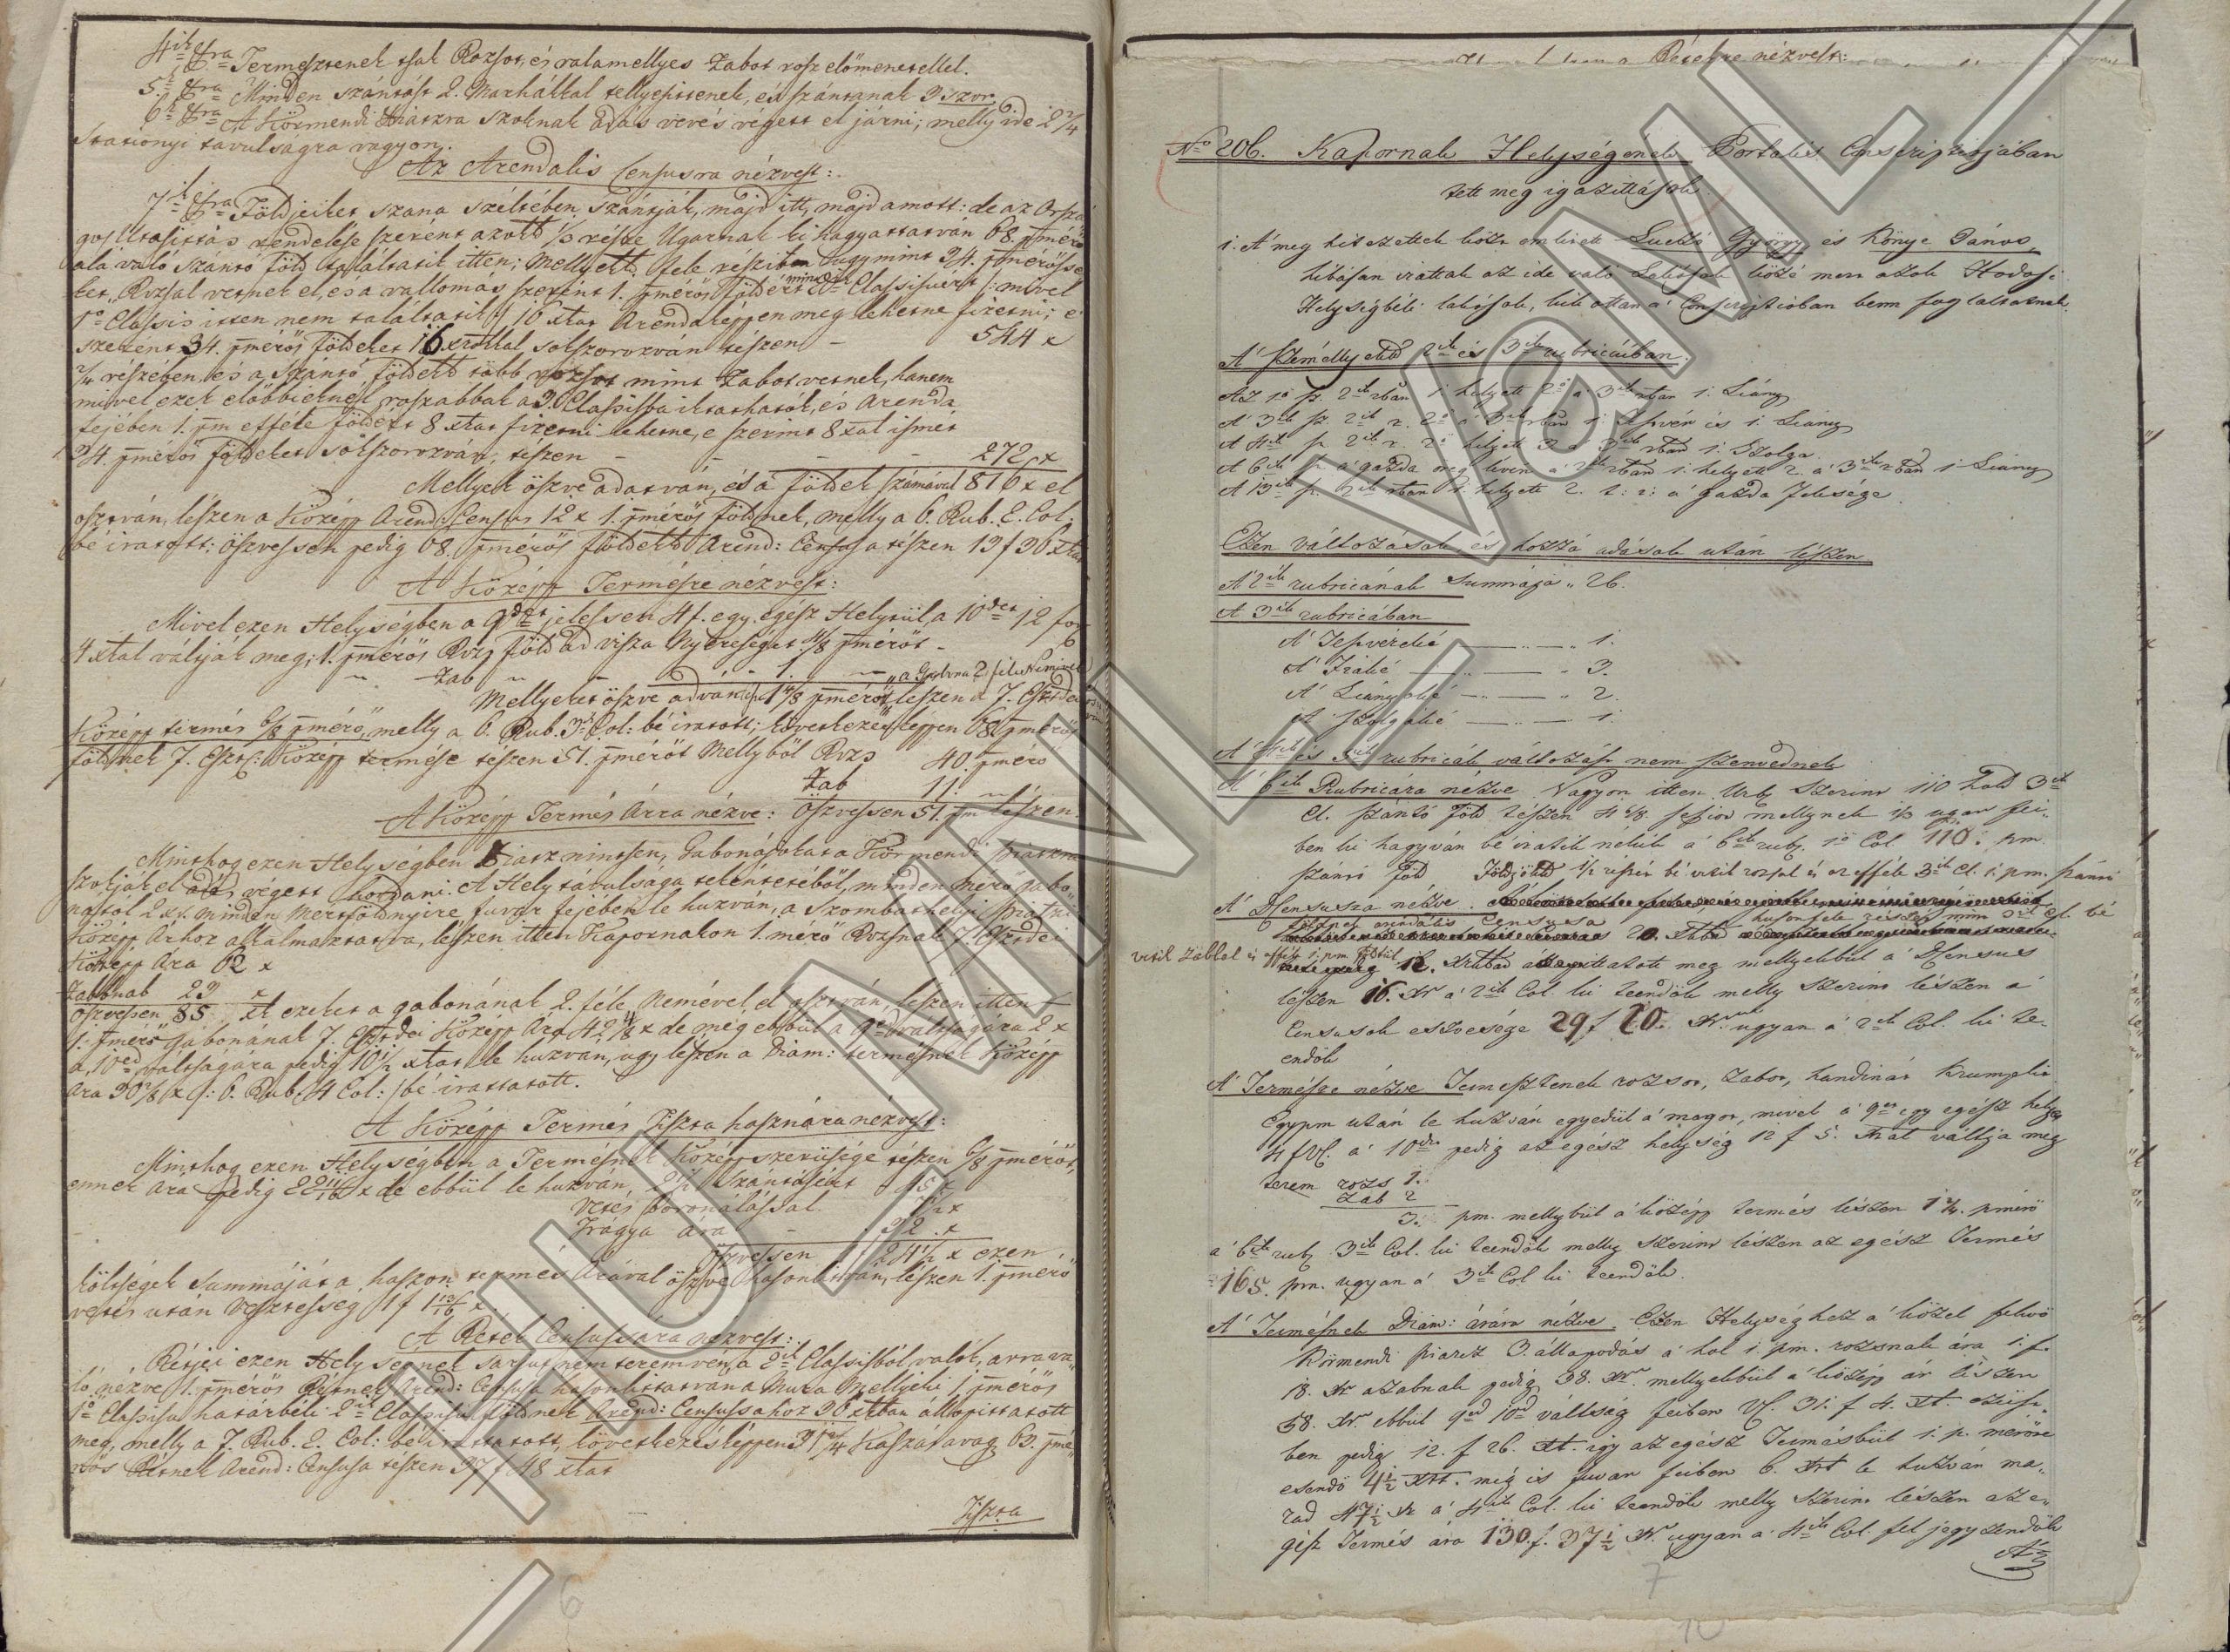 4ik Xra Termesztenek tsak Rozsot, és valamellyes Zabot rosz elömenetellel.
5k Xra Minden szántást 2. Marhákkal tellyesittenek, és szántanak 3szor
6k Xra A Körmendi Piatzra szoknak adás vevés végett el járni; melly ide 2 2/4
Statiónyi távulságra vagyon.
Az Arendalis Censusra nézvest:
7ik Xra Földjeiket szana szélsében szántják, majd itt, majd amott: de az Orszá
gos Utasittás rendelése szerént azott 1/3 része Ugarnak ki hagyattatván 68. pmérő
alá való szántó föld találtatik itten; Mellyett fele részit ugymint 34. pmérősse
ket, Rozsal vetnek el, és a vallomás szerént 1. pmérős földért Classisuért /: mivel
1ö Classis itten nem találtatik :/ 16 xtat Arendaképpen meg lehetne fizetni; e
szerént 34. pmérős földeket 16 xrokkal sokszorozván tészen - 544 x
2/4 részében, és a szántó földekk több rozsot mint Zabot vetnek, hanem
mivel ezek elöbbieknél roszabbak a 3. Classisba iktathatók, és Arenda
fejében 1. pm efféle földért 8 xtat fizetni lehetne, e szerint 8 xal ismét
34. pmérős földeket sokszorozván, tészen - - - - 272 x
Mellyek öszve adatván, és a földek számával 816 x el
osztván, lészen a Középp Arend: Census 12 x 1. pmérős földnek, melly a 6. Rub. 2. Col:
bé iratott: öszvessen pedig 68. pmérős földekk Arend: Censusa tészen 13 f 36 xtat
A Középp Termésre nézvest:
Mivel ezen Helységben a 9det jelessen 4 f. egy egész Helyrül, a 10det 12 for
4 xtal váltják meg; 1. pmérős Rozs föld ad visza Nyereséget 4/8 pmérőt - 6
" Zab " - - 1. -
Mellyeket öszve adván 1 4/8 pmérőt, lészen a 7. Esztdei
Középp termés 6/8 pmérő, melly a 6. Rub. 3. Col: bé iratott; következésképpen 68. pmérős
földnek 7. Eszt: Középp termése tészen 51. pmérőt Mellyböl Rozs 40 pmérő
Zab 11. "
A Középp Termés Árra nézve: Öszvessen 51. pm lészen.
Minthog ezen Helységben Piatz nintsen, Gabonájokat a Körmendi piatzra
szokják el adás végett hordani. A Hely távulsága tekéntetéböl, minden mérő gabo
nától 2 xt. minden mertföldnyire fuvar fejében le huzván, a Szombathelyi piatzi
Középp Árhoz alkalmaztatva, lészen itten Kapornakon 1. mérő Rozsnak 7. Esztdei
Középp Ára 62 x
Zabnak 23 x
Öszvessen 85 xt ezeket a gabonának 2. féle Nemével el osztván, lészen itten
1. pmérő gabonának 7. Esztdei Középp Ára 42 4/8 x de még ebbül a 9ed váltságára 2 x
a 10ed váltságára pedig 10 1/2 xtat le huzván, ugy lészen a Diam: termésnek Középp
Ára 30 2/8 x /: 6. Rub. 4 Col: / bé irattatott.
A Középp Termés Tiszta hasznára nézvest:
Minthog ezen Helységben a Termésnek Középpszerüsége tészen 6/8 pmérőt,
ennek ára pedig 22 11/16 x de ebbül le huzván 2 1/2 Szántásért 45 x
Vetés boronálással
Trágya ára - 32 x
Öszvessen 1 f 24 1/2 x ezen
költségek Summáját a haszon termés Árával öszve hasonlitván, lészen 1. pmérő
vetés után Vesztesség 1 f 1 13/16 x.
A Rétek Censussára nézvest:
Rétjei ezen Helységnek sarjut nem teremvén, a 2ik Classisból valók, arra va
ló nézve 1. pmérős Rétnek Arend: Censusa hasonlittatván a Mura Mellyéki 1 pmérős
1ö Classisu határbéli 2ik Classisu földnek Arend: Censussahoz 36 xtban állapittatott
meg, melly a 7. Rub. 2. Col: bé irattatott, következésképpen 31 2/4 Kaszás avag 63. pmé
rős Rétnek Arend: Censusa tészen 37 f 48 xtat
Tiszta
Rétekre nézvest:
No 206. Kapornak Helységenek Portalis Conscriptiojában
tett meg igazittások.
1. A' meg hitezettek közt emlitett Luczó György és Könye János
hibásan irattak az ide való Lakósok közé mert azok Hodasi
Helységbéli lakosok, kik ottan a' Conscriptioban benn foglaltatnak.
A' Személlyekk 2ik és 3ik rubricáiban.
Az 1ö sz. 2ik rban 1 helyett 2ö a 3ik rban 1. Leány
A' 3ik sz. 2ik r. 2ö a 3ik rban 1. Testvér és 1. Leány
A 4ik sz. 2ik r. 2ö helyett 3 a 3ik rban 1. Szolga.
A 6ik sz. a gazda öreg lévén a 2ik rban 1. helyett 2. a' 3ik rban 1 Leány
A' 13ik sz. 2ik rban 1. helyett 2. t: i: a' gazda Felesége.
Ezen változások és hozzá adások után lészen
A' 2ik rubricának Summája " 26.
A 3ik rubricában
A' Testvéreké — " — " 1.
A' Fiáké — " — " 3.
A' Leányoké — " — " 2.
A' Szolgáké — " — " 1.
A' 4ik és 5ik rubricák változást nem szenvednek
A' 6ik Rubricára nézve. Vagyon itten Urb. Szerint 110 hold 3ik
Cl. szántó föld tészen 4 6/8 sessiot mellynek 1/3 ugar fei-
ben ki hagyván bé iratik nékik a' 6ik rub. 1ö Col 110. pm.
szántó föld Földjökk 1/2 részét bé vetik rozsal és az efféle 3ik Cl. 1. pm. szántó
A' Censusra nézve.
földnek arendalis Censusa 20. xrban hasonfele részét mint 3ik Cl. bé
vetik Zabbal és efféle 1. pm földtül
12. xrkban állapittatott meg mellyekbül a' Census
lészen 16. xr a 2ik Col. ki teendök melly Szerint lészen a
Censusok eszvesége 29 f 20. xr ugyan a' 2ik Col. ki te-
endök
A' Termésre nézve Termesztenek rozsot, Zabot, handinát Krumplit
Egy pm után le huzván egyedül a' magot, mivel a' 9et egy egész hely
4 f Vf. a' 10det pedig az egész helység 12 f 5. xrál váltja meg
terem rozs 1.
Zab 2
3. pm. mellybül a' középp termés lészen 1 1/2. pmérő
a' 6ik rub. 3ik Col. ki teendök melly Szerint lészen az egész Termés
165. pm. ugyan a' 3ik Col ki teendök.
A' Termésnek Diam: árára nézve. Ezen Helységhez a' közel fekvő
Körmendi piarcz 3. állapodás a' hol 1 pm. rozsnak ára 1. f.
18. xr a zabnak pedig 38. xr. mellyekbül a' középp ár lészen
58. xr. ebbül 9ed 10ed váltság feiben Vf. 31. f 4. xt. ezüst-
ben pedig 12. f 26. xt. igy az egész Termésbül 1. p. mérőre
esendö 4 1/2 xrt. még is fuvar feiben 6. xrt le huzván ma-
rad 47 1/2 xr a' 4ik Col. ki teendök melly Szerint lészen az e-
gész Termés ára 130. f. 37 1/2 xr ugyan a' 4ik Col. fel jegyzendök
A'
7